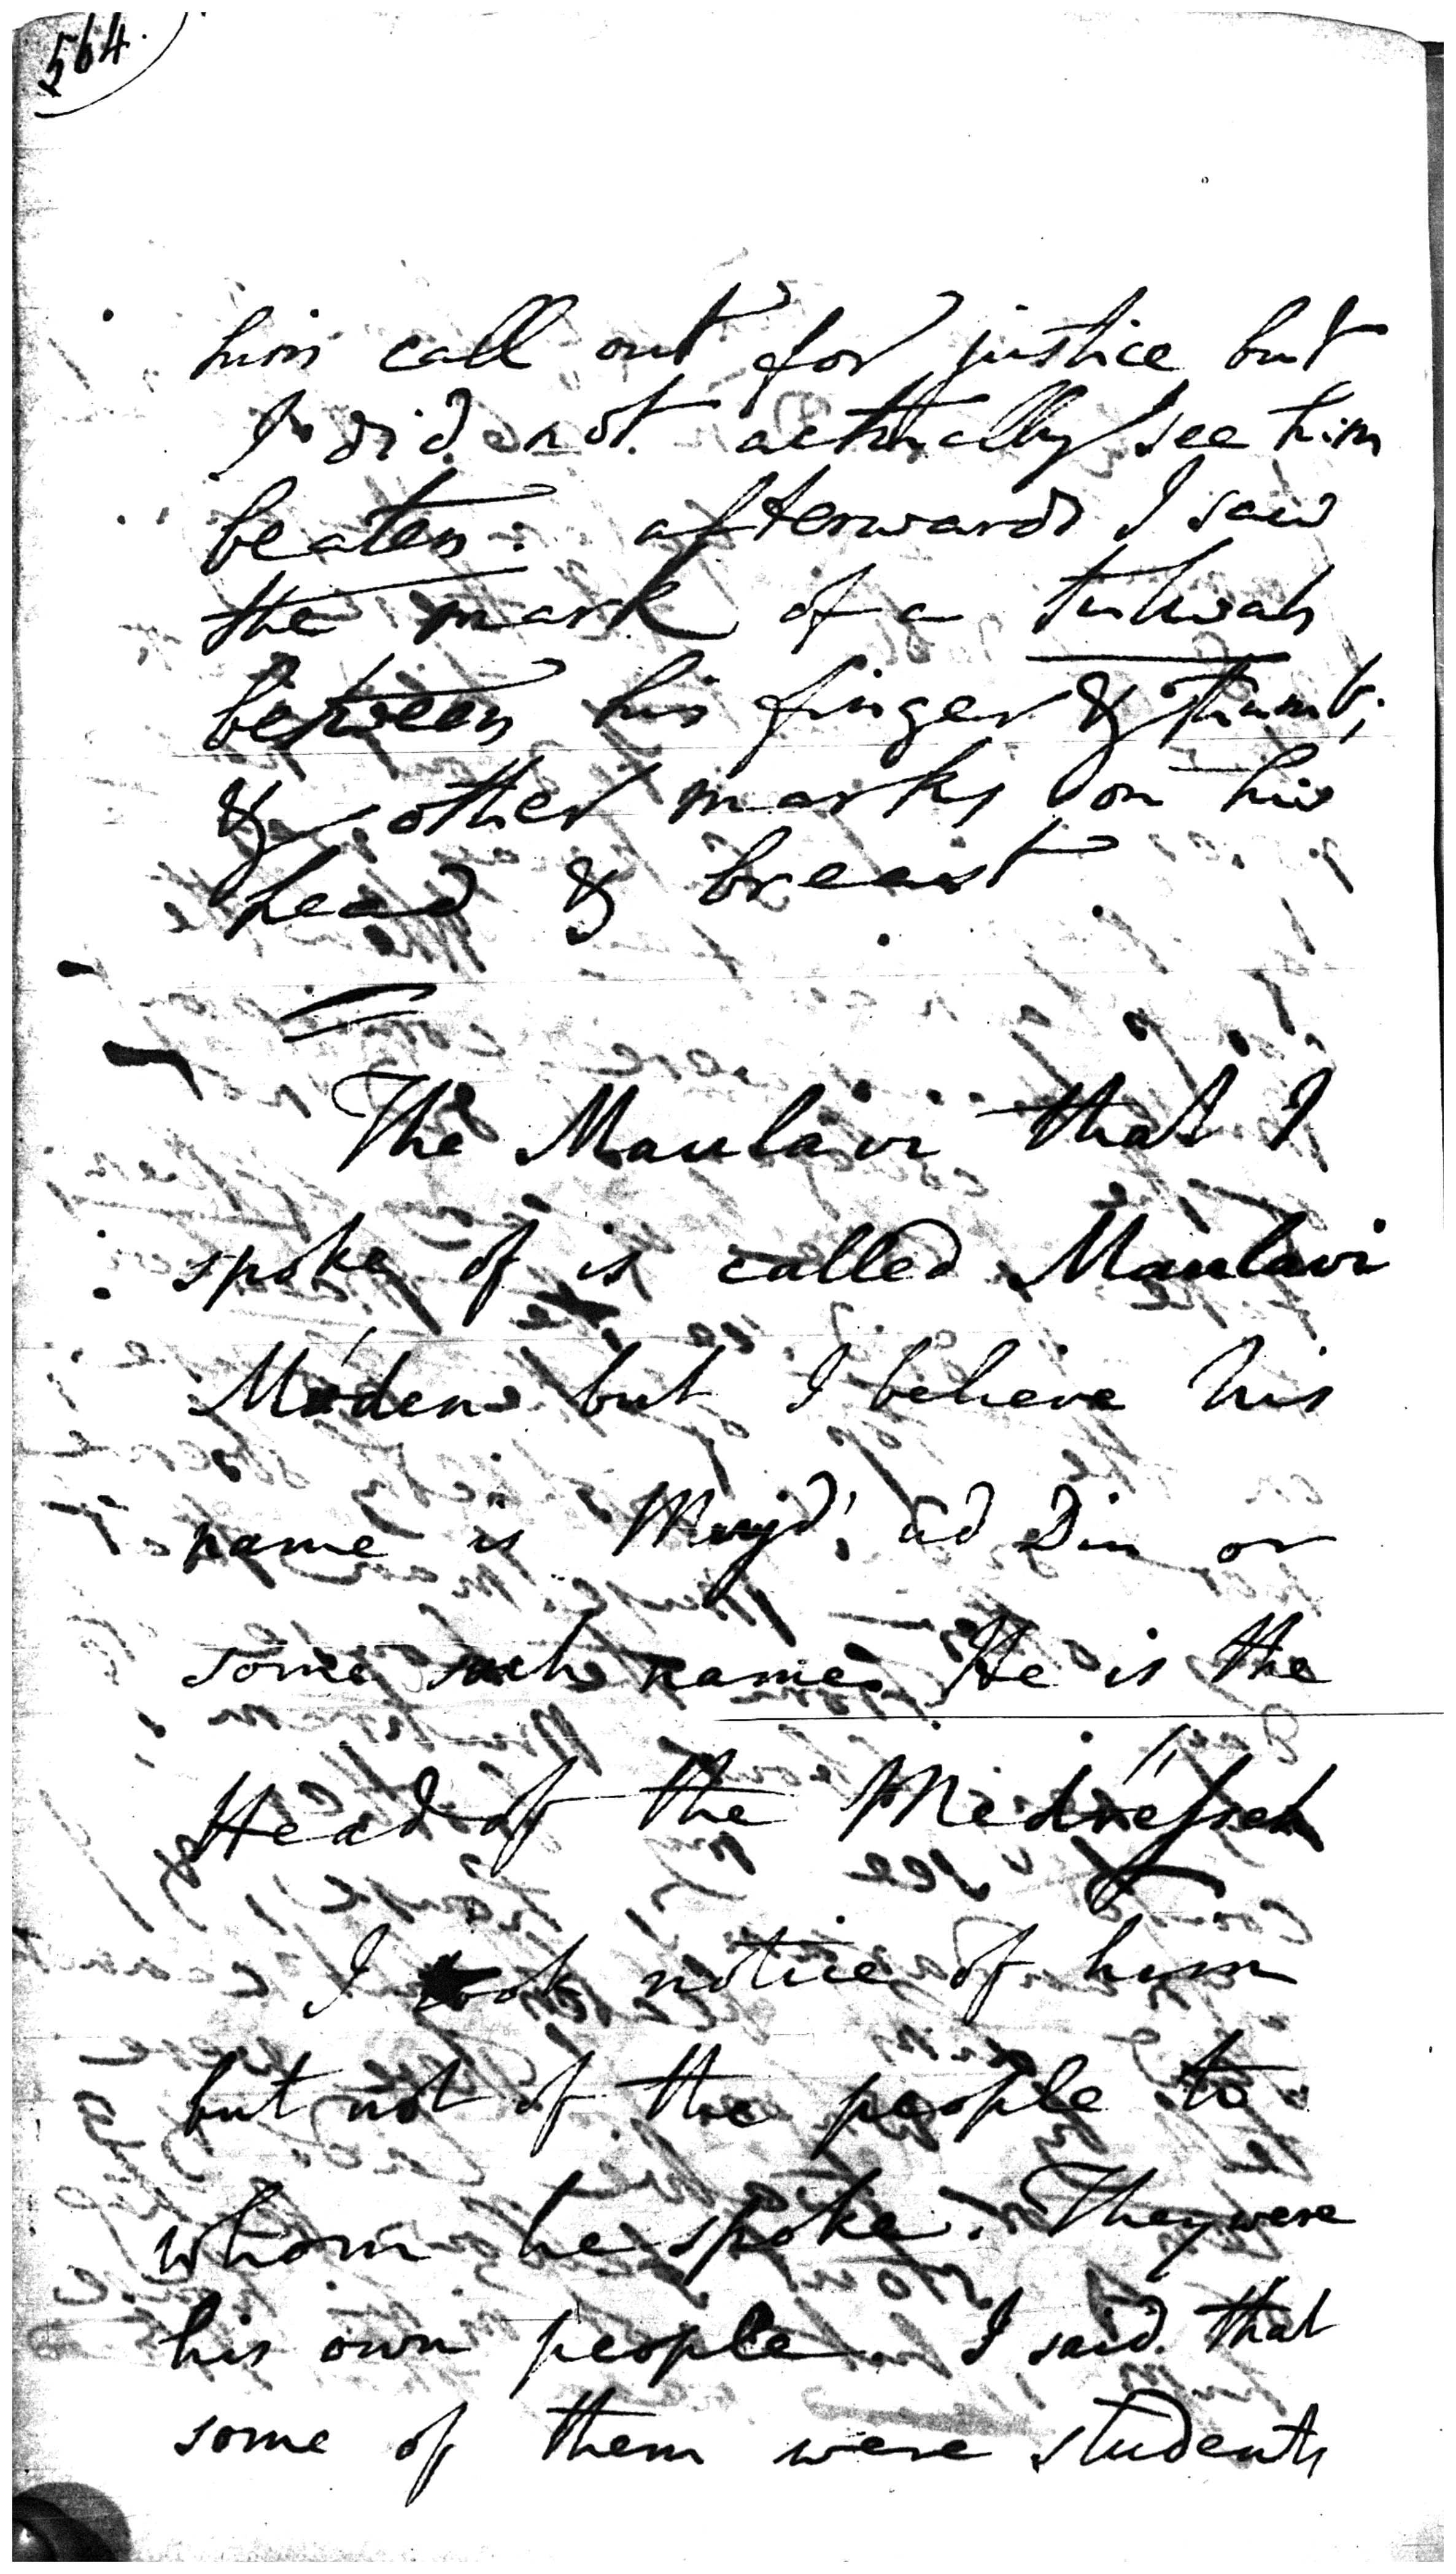 564.
him call out for justice but
I did not actually see him
beaten. afterwards I saw
the mark of a tulwah
between his finger & thumb;
& other marks on his
head & breast
The Maulavi that I
spoke of is called Maulavi
Móden but I believe his
name is Mujd' ad Din or
some such name. He is the
Head of the Medresseh
I took notice of him
but not of the people to
whom he spoke. They were
his own people. I said that
some of them were students